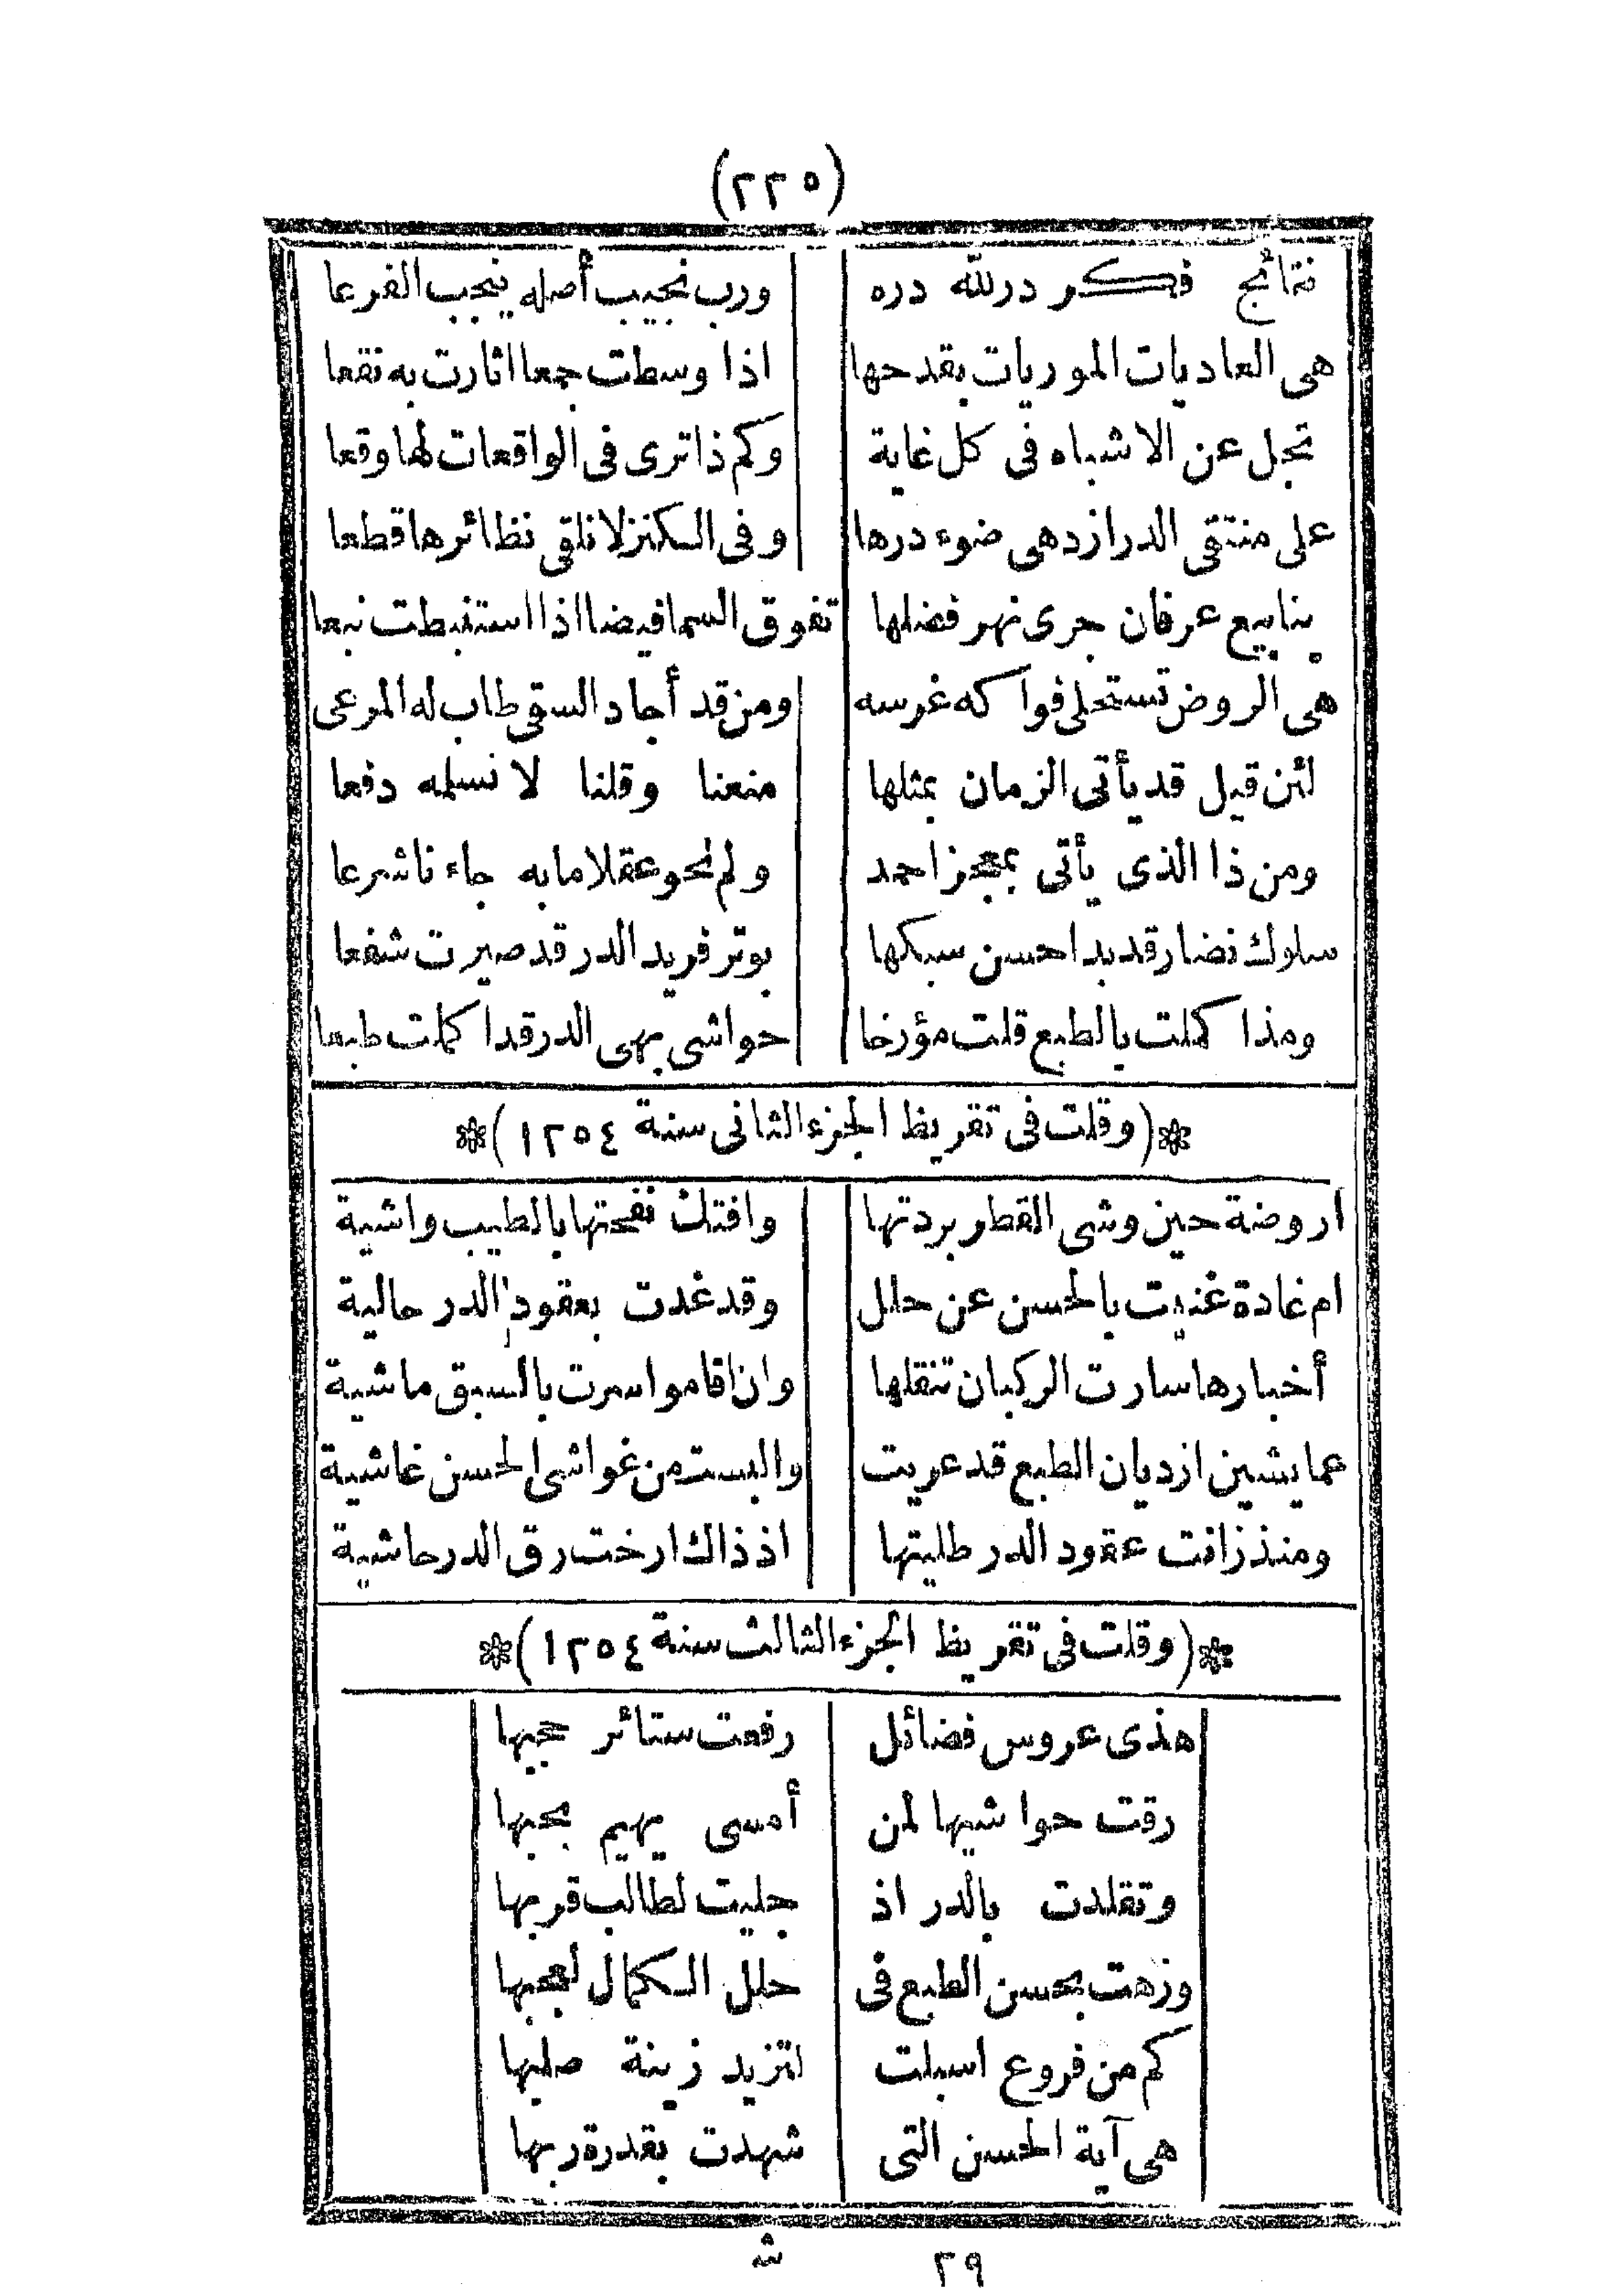 (٢٢٥)
نتائج فكر در لله دره ورب نجيب أصله ينجب الفرعا
هى العاديات الموريات بقدحها اذا وسطت جمعا اثارت به نقعا
تجل عن الاشباه فى كل غاية وكم ذا ترى فى الواقعات لها وقعا
على منتقى الدر ازدهى ضوء درها وفى الكنز لا نلقى نظائرها قطعا
ينابيع عرفان جرى نهر فضلها تفوق السما فيضا اذا استنبطت نبعا
هى الروض تستحلى فواكه غرسه ومن قد أجاد السقى طاب له المرعى
لئن قيل قد يأتى الزمان بمثلها منعنا وقلنا لا نسلمه دفعا
ومن ذا الذى يأتى بمعجز احمد ولم نحو عقلا ما به جاء نا شرعا
سلوك نضار قد بدا حسن سبكها بوتر فريد الدر قد صيرت شفعا
ومذا كملت بالطبع قلت مؤرخا حواشى بهى الدر قد اكملت طبعا
*(وقلت فى تقريظ الجزء الثانى سنة ١٢٥٤)*
اروضة حين وشى القطر بردتها وافتك نفحتها بالطيب واشية
ام غادة غنيت بالحسن عن حلل وقد غدت بعقود الدر حالية
أخبارها سارت الركبان تنقلها وان اقاموا سرت بالسبق ماشية
عما يشين ازديان الطبع قد عريت والبست من غواشى الحسن غاشية
ومنذ زانت عقود الدر طليتها اذ ذاك ارخت رق الدر حاشية
*(وقلت فى تقريظ الجزء الثالث سنة ١٢٥٤)*
هذى عروس فضائل رفعت ستائر حجبها
رقت حواشيها لمن أمسى يهيم بحبها
وتقلدت بالدر اذ جليت لطالب قربها
وزهت بحسن الطبع فى حلل الكمال لعجبها
كم من فروع اسبلت لتزيد زينة صلبها
هى آية الحسن التى شهدت بقدرة ربها
٢٩ ش